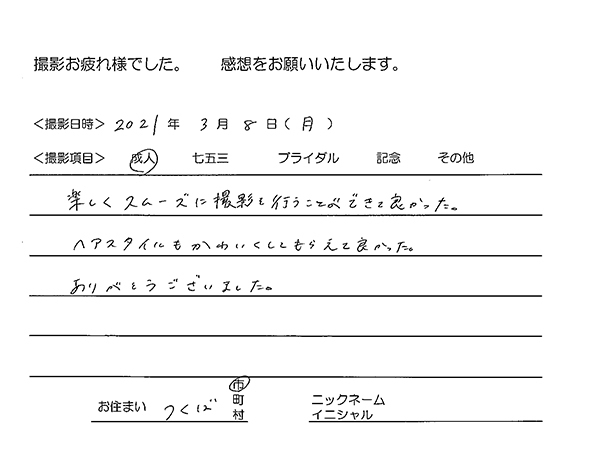 撮影お疲れ様でした。 感想をお願いいたします。
<撮影日時> 2021年 3月 8日(月)
<撮影項目> 成人 七五三 ブライダル 記念 その他
楽しくスムーズに撮影を行うことができて良かった。
ヘアスタイルもかわいくしてもらえて良かった。
ありがとうございました。
お住まい つくば 市町村 ニックネーム イニシャル